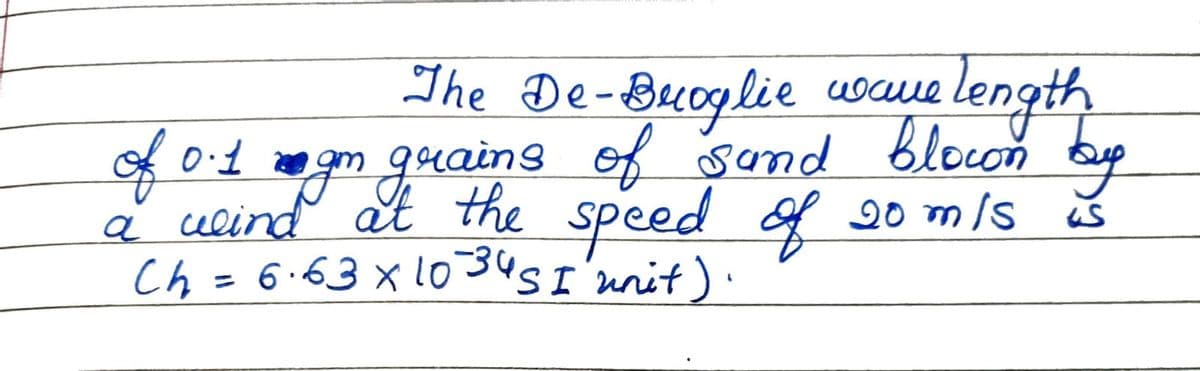 The De-Broglie wave length
of 0.1 gm grains of sand blown by
a wind at the speed of 20 m/s is
(h = 6.63 × 10⁻³⁴ SI unit).